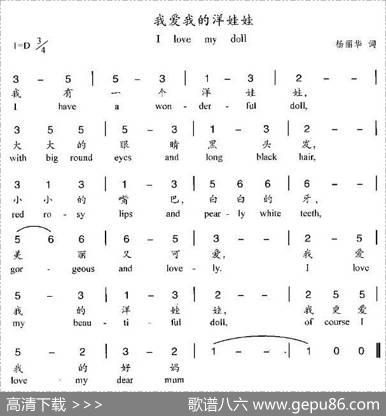 我爱我的洋娃娃
I love my doll
1=D 3/4
杨丽华 词
3 - 5 | 5 - 5 | 1 - 3 | 2 - - |
我 有 一 个 洋 娃 娃,
I have a won- der- ful doll,
3 1 3 | 5 5 5 | 5 - 3 | 2 - - |
大 大 的 眼 睛 黑 头 发,
with big round eyes and long black hair,
3 1 3 | 5 5 5 | 6 6 6 | 6 - - |
小 小 的 嘴 巴, 白 白 的 牙,
red ro- sy lips and pear- ly white teeth,
5 6 6 | 6 - 6 | 5 - - | 3 - 2 |
美 丽 又 可 爱, 我 爱
gor- geous and love- ly. I love
5 - 3 | 1 - 3 | 2 - - | 2 5 5 |
我 的 洋 娃 娃, 我 更 爱
my beau- ti- ful doll, of course I
5 - 2 | 3 - 2 | 1 - - | 1 0 0 ‖
我 的 好 妈
love my dear mum
高清下载 >>>
歌谱八六 www.gepu86.com